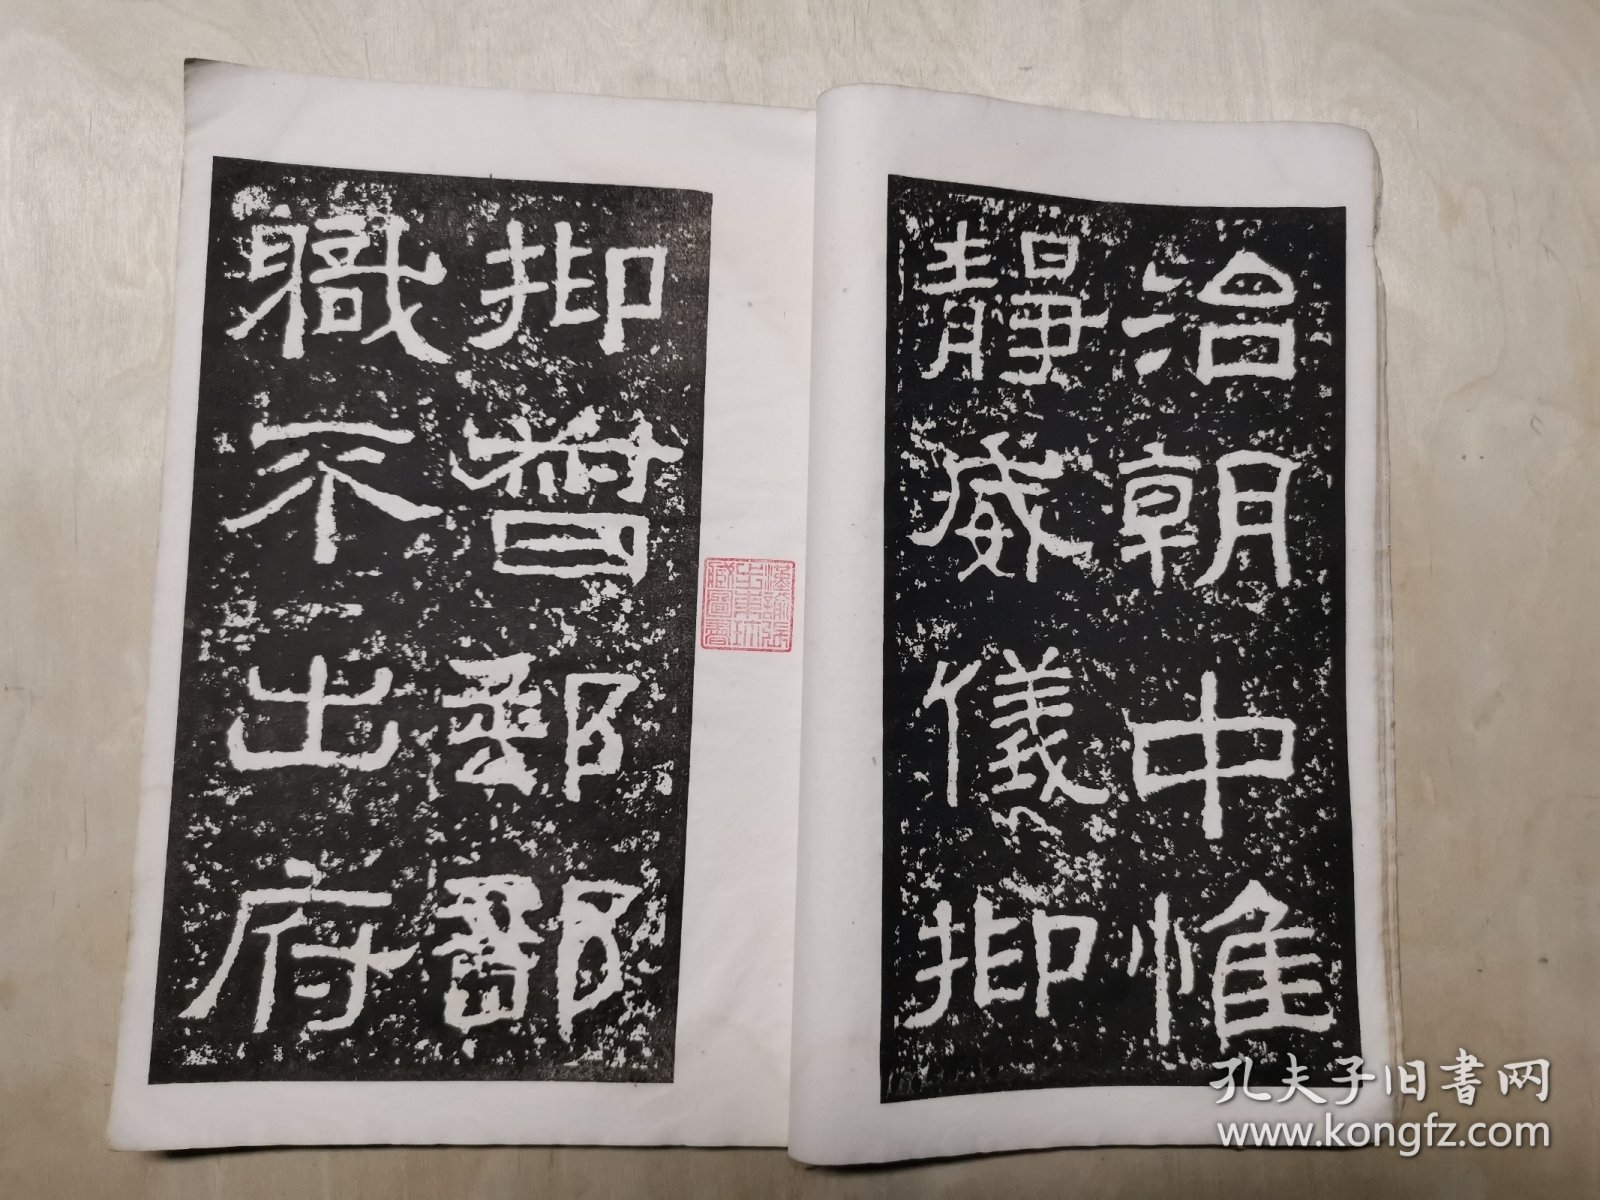 治朝中惟
靜威儀抑
抑督郵部
職不出府
孔夫子旧书网
www.kongfz.com